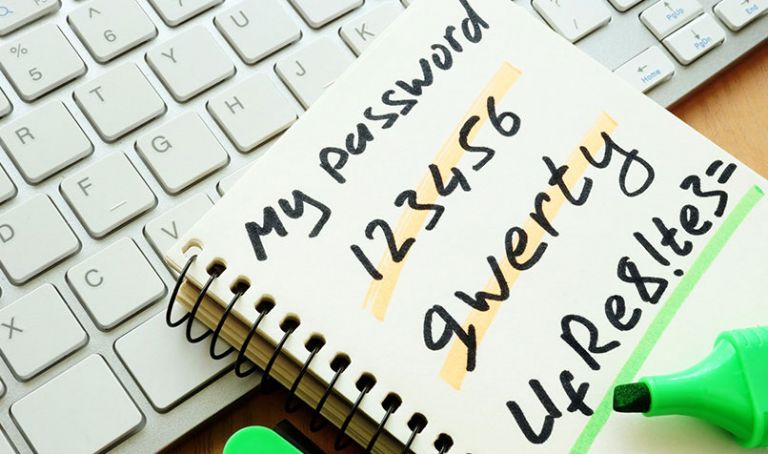 My password
123456
qwerty
UfRe8!te3=
% 5
^ 6
R T Y U
D F G H J K
X C V
PgUp
Home PgDn End